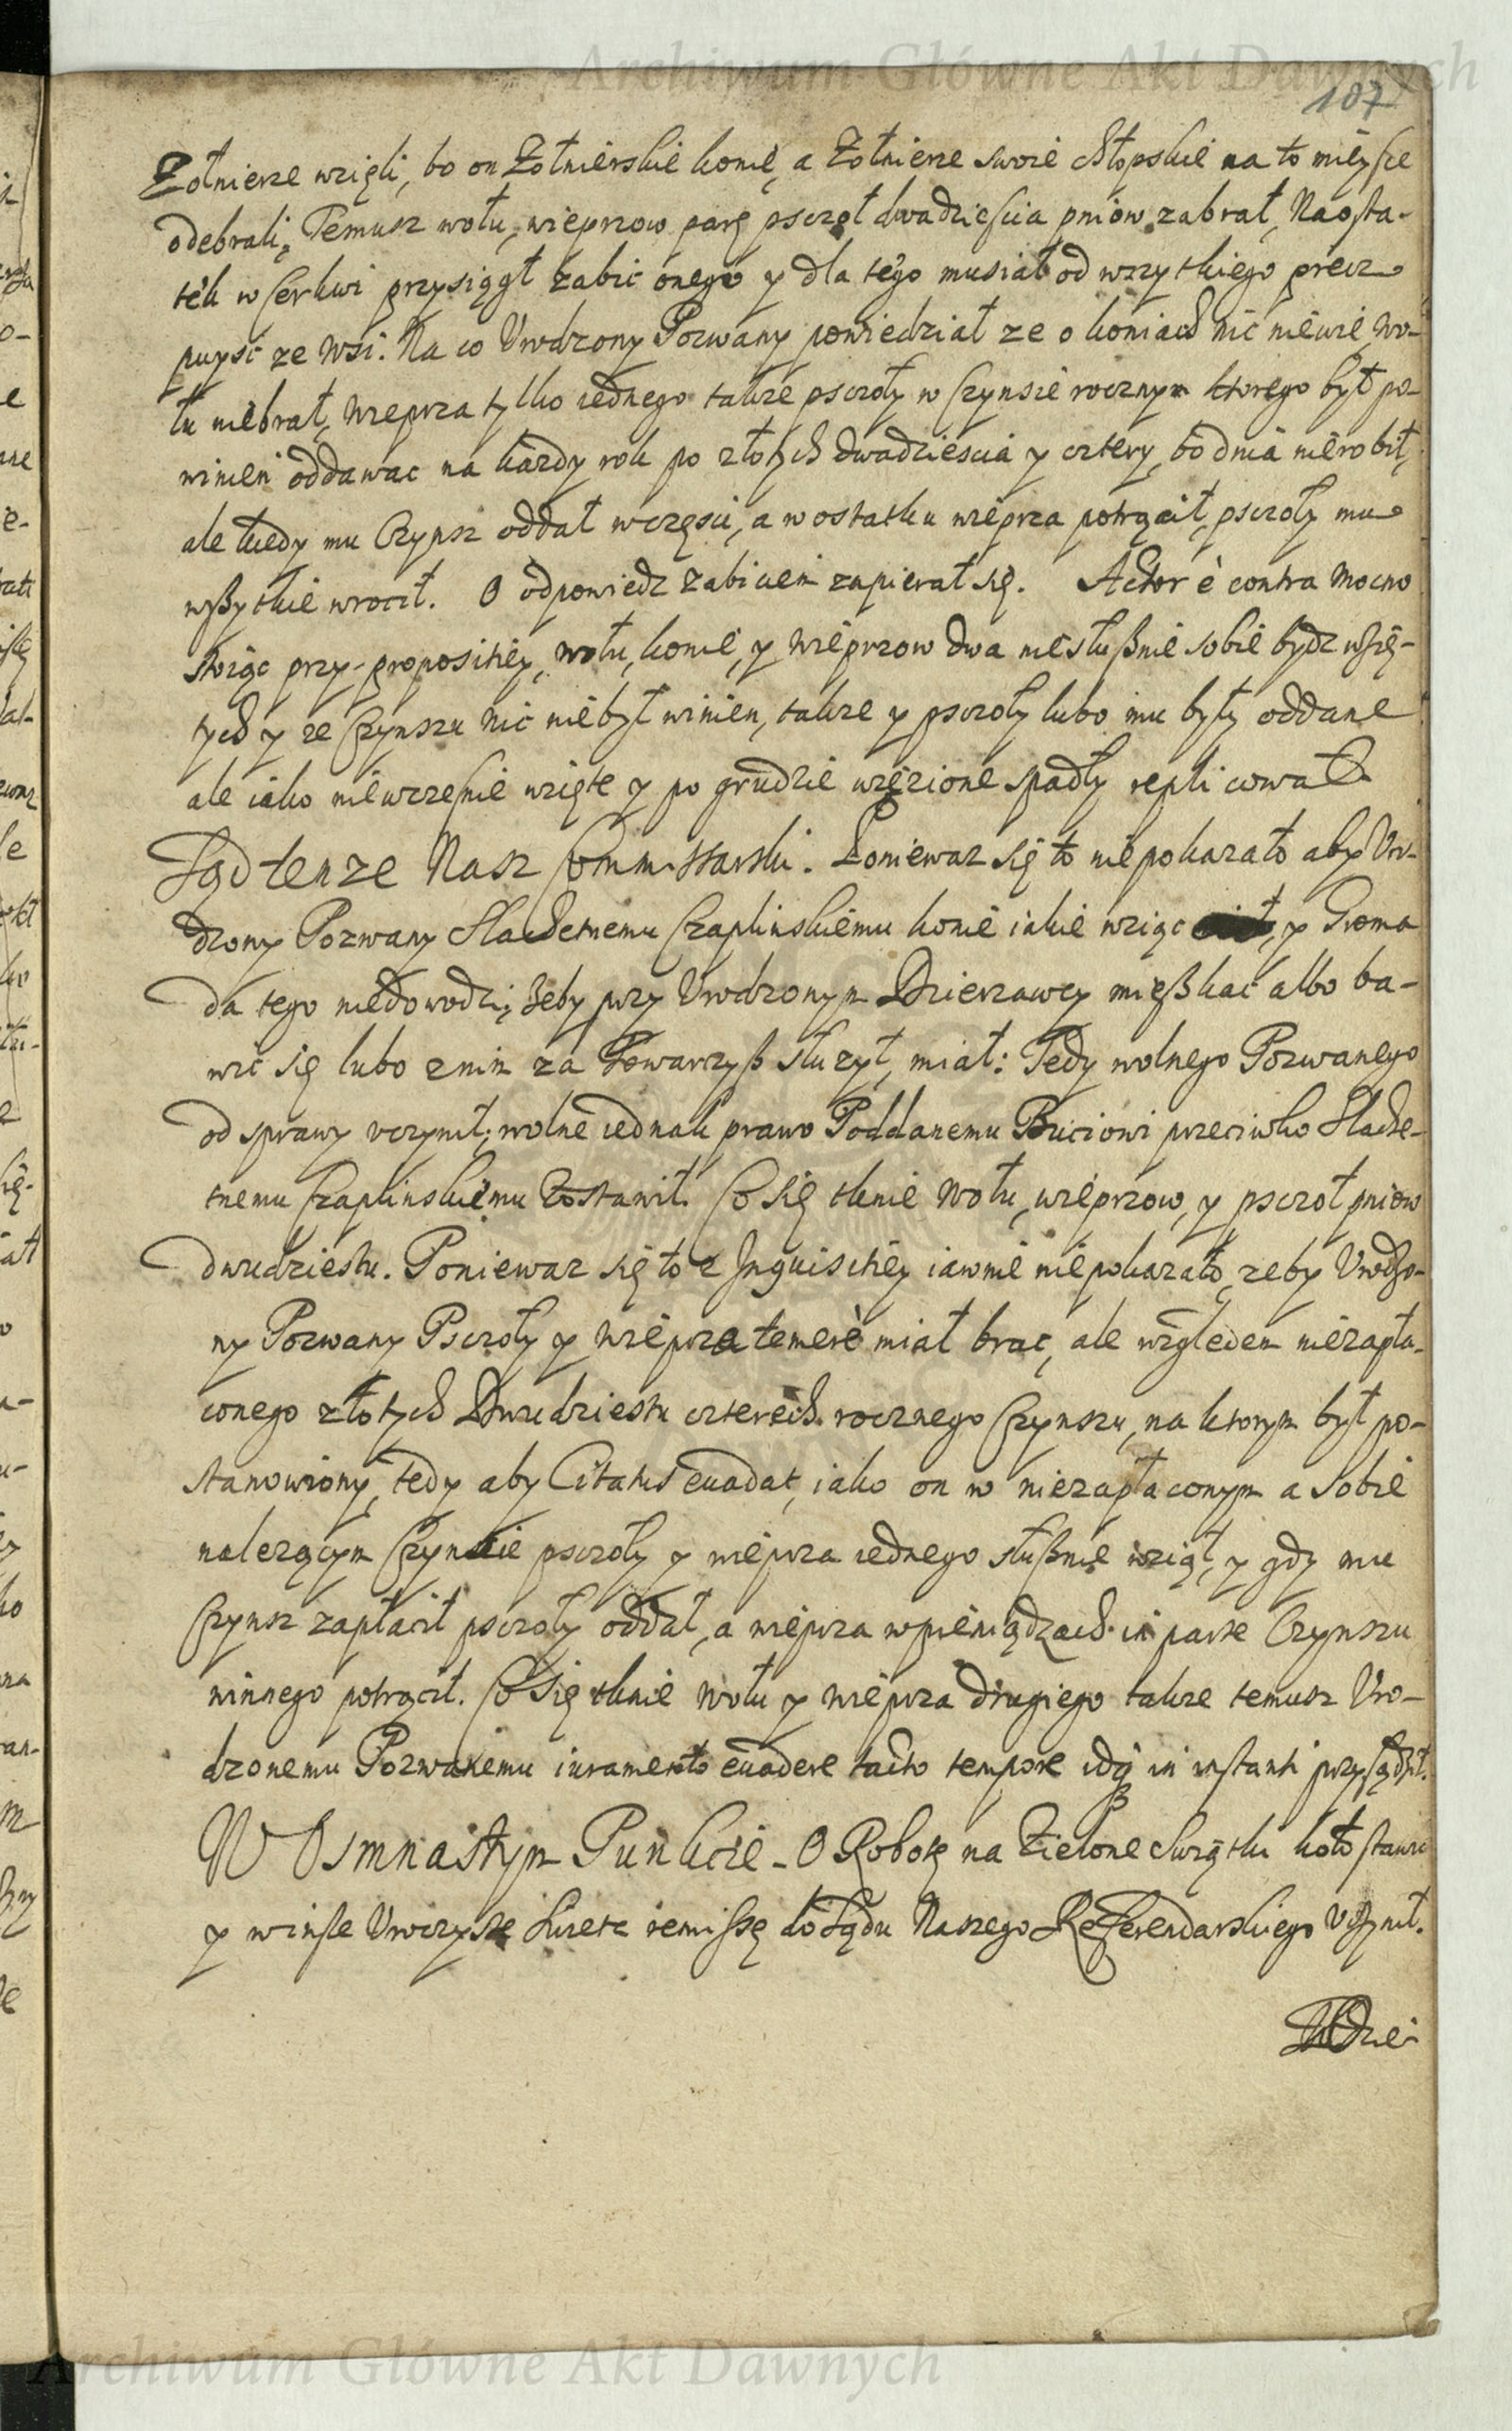 Archiwum Główne Akt Dawnych
107
Zołnierze wzięli, bo on Zołnierskie konie, a Zołnierze swoie chłopskie na to mieysce
odebrali, Temusz wołu, wieprzow parę pszczoł dwadziescia pniow zabrał, Naosta-
tek w Cerkwi przysiągł zabic onego y dla tego musiał od wszytkiego precz
puysc ze wsi. Na co Vrodzony Pozwany powiedział ze o koniach nic niewie, wo-
łu niebrał, wieprza tylko iednego takze psczoły w Czynszie rocznym ktorego był po-
winien oddawac na kazdy rok po złotych dwadziescia y cztery, bo dnia nierobił,
ale kiedy mu Czynsz oddał wczęsci, a w ostatku wieprza potrącił, psczoły mu
wszytkie wrocił. O odpowiedz zabiciem zapierał się. Actor è contra mocno
stoiąc przy propositiey, wołu, konie, y wieprzow dwa niesłusznie sobie bydz wzię-
tych y ze Czynszu nic niebył winien, takze y psczoły lubo mu były oddane
ale iako niewczesnie wzięte y po grudzie wiezione spadły replicował
Sąd tenze Nasz Commissarski. Poniewaz się to niepokazało aby Vro-
dzony Pozwany Slachetnemu Czaplinskiemu konie iakie wziąc y Groma
da tego niedowodzi, zeby przy Vrodzonym Dzierzawcy mieszkac albo ba-
wic się lubo znim za Towarzysz słuzył, miał: Tedy wolnego Pozwanego
od sprawy vczynił; wolne iednak prawo Poddanemu Buciowi przeciwko Slache-
tnemu Czaplinskiemu Zostawił. Co się tknie wołu, wieprzow, y psczoł pniow
dwudziestu. Poniewaz się to z Inquisitiey iawnie niepokazało, zeby Vrodzo-
ny Pozwany Psczoły y wieprza temerè miał brac, ale względem niezapła-
conego złotych Dwudziestu czterech rocznego Czynszu, na ktorym był po-
stanowiony, tedy aby Citatus euadat, iako on w niezapłaconym a sobie
nalezącym Czynszie psczoły y wieprza iednego słusznie wziął, y gdy mu
Czynsz zapłacił psczoły oddał, a wieprza wpieniądzach in parte Czynszu
winnego potrącił. Co się tknie wołu y wieprza drugiego takze temusz Vro-
dzonemu Pozwanemu iuramento euadere tacto tempore idq3 in instanti przysądził.
W Osmnastym Punkcie - O Robotę na Zielone Swiątki koło stawu
y w insze Vroczyste Swieta remissę do Sądu Naszego Referendarskiego vczynił.
Archiwum Główne Akt Dawnych